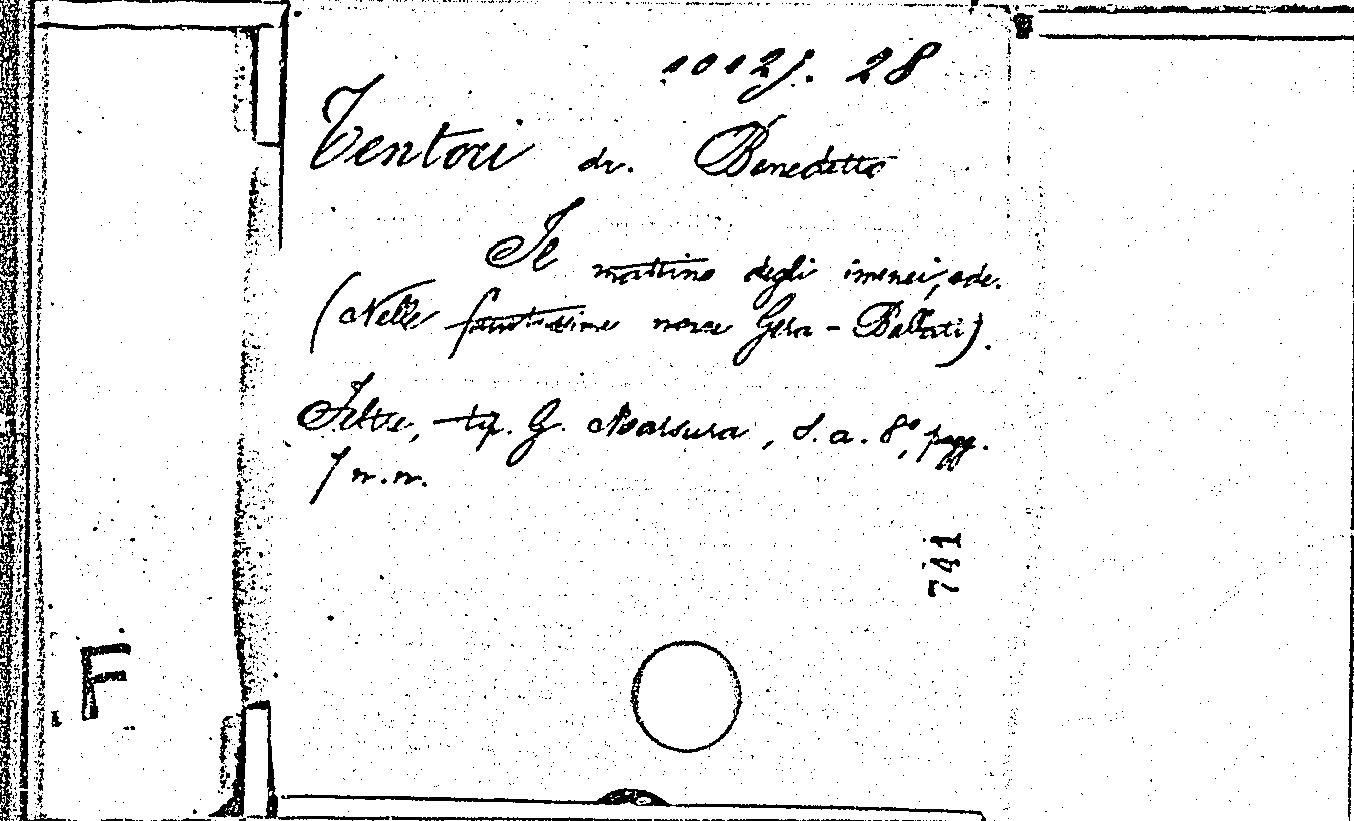 1012J. 28
Tentori dr. Benedetto
Il mattino degli imenei, ode.
(Nelle faustissime nozze Gera - Bellati).
Feltre, tip. G. Marsura, s. a. 8°, pagg.
7 n.n.
741
F